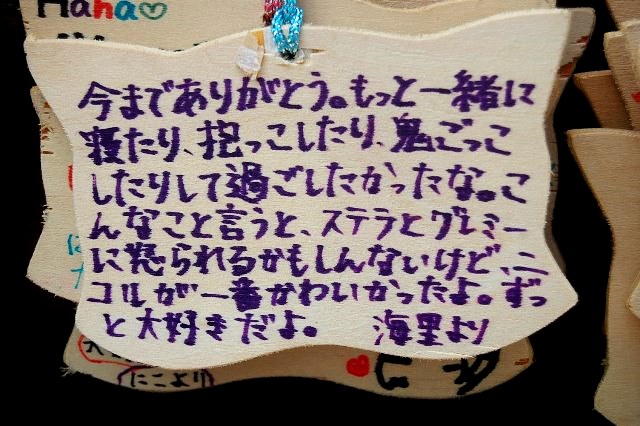 Hana♡
今までありがとう。もっと一緒に
寝たり、抱っこしたり、鬼ごっこ
したりして過ごしたかったな。こ
んなこと言うと、ステラとグレミー
に怒られるかもしんないけど、ニ
コルが一番かわいかったよ。ずっ
と大好きだよ。 海里より
にこより